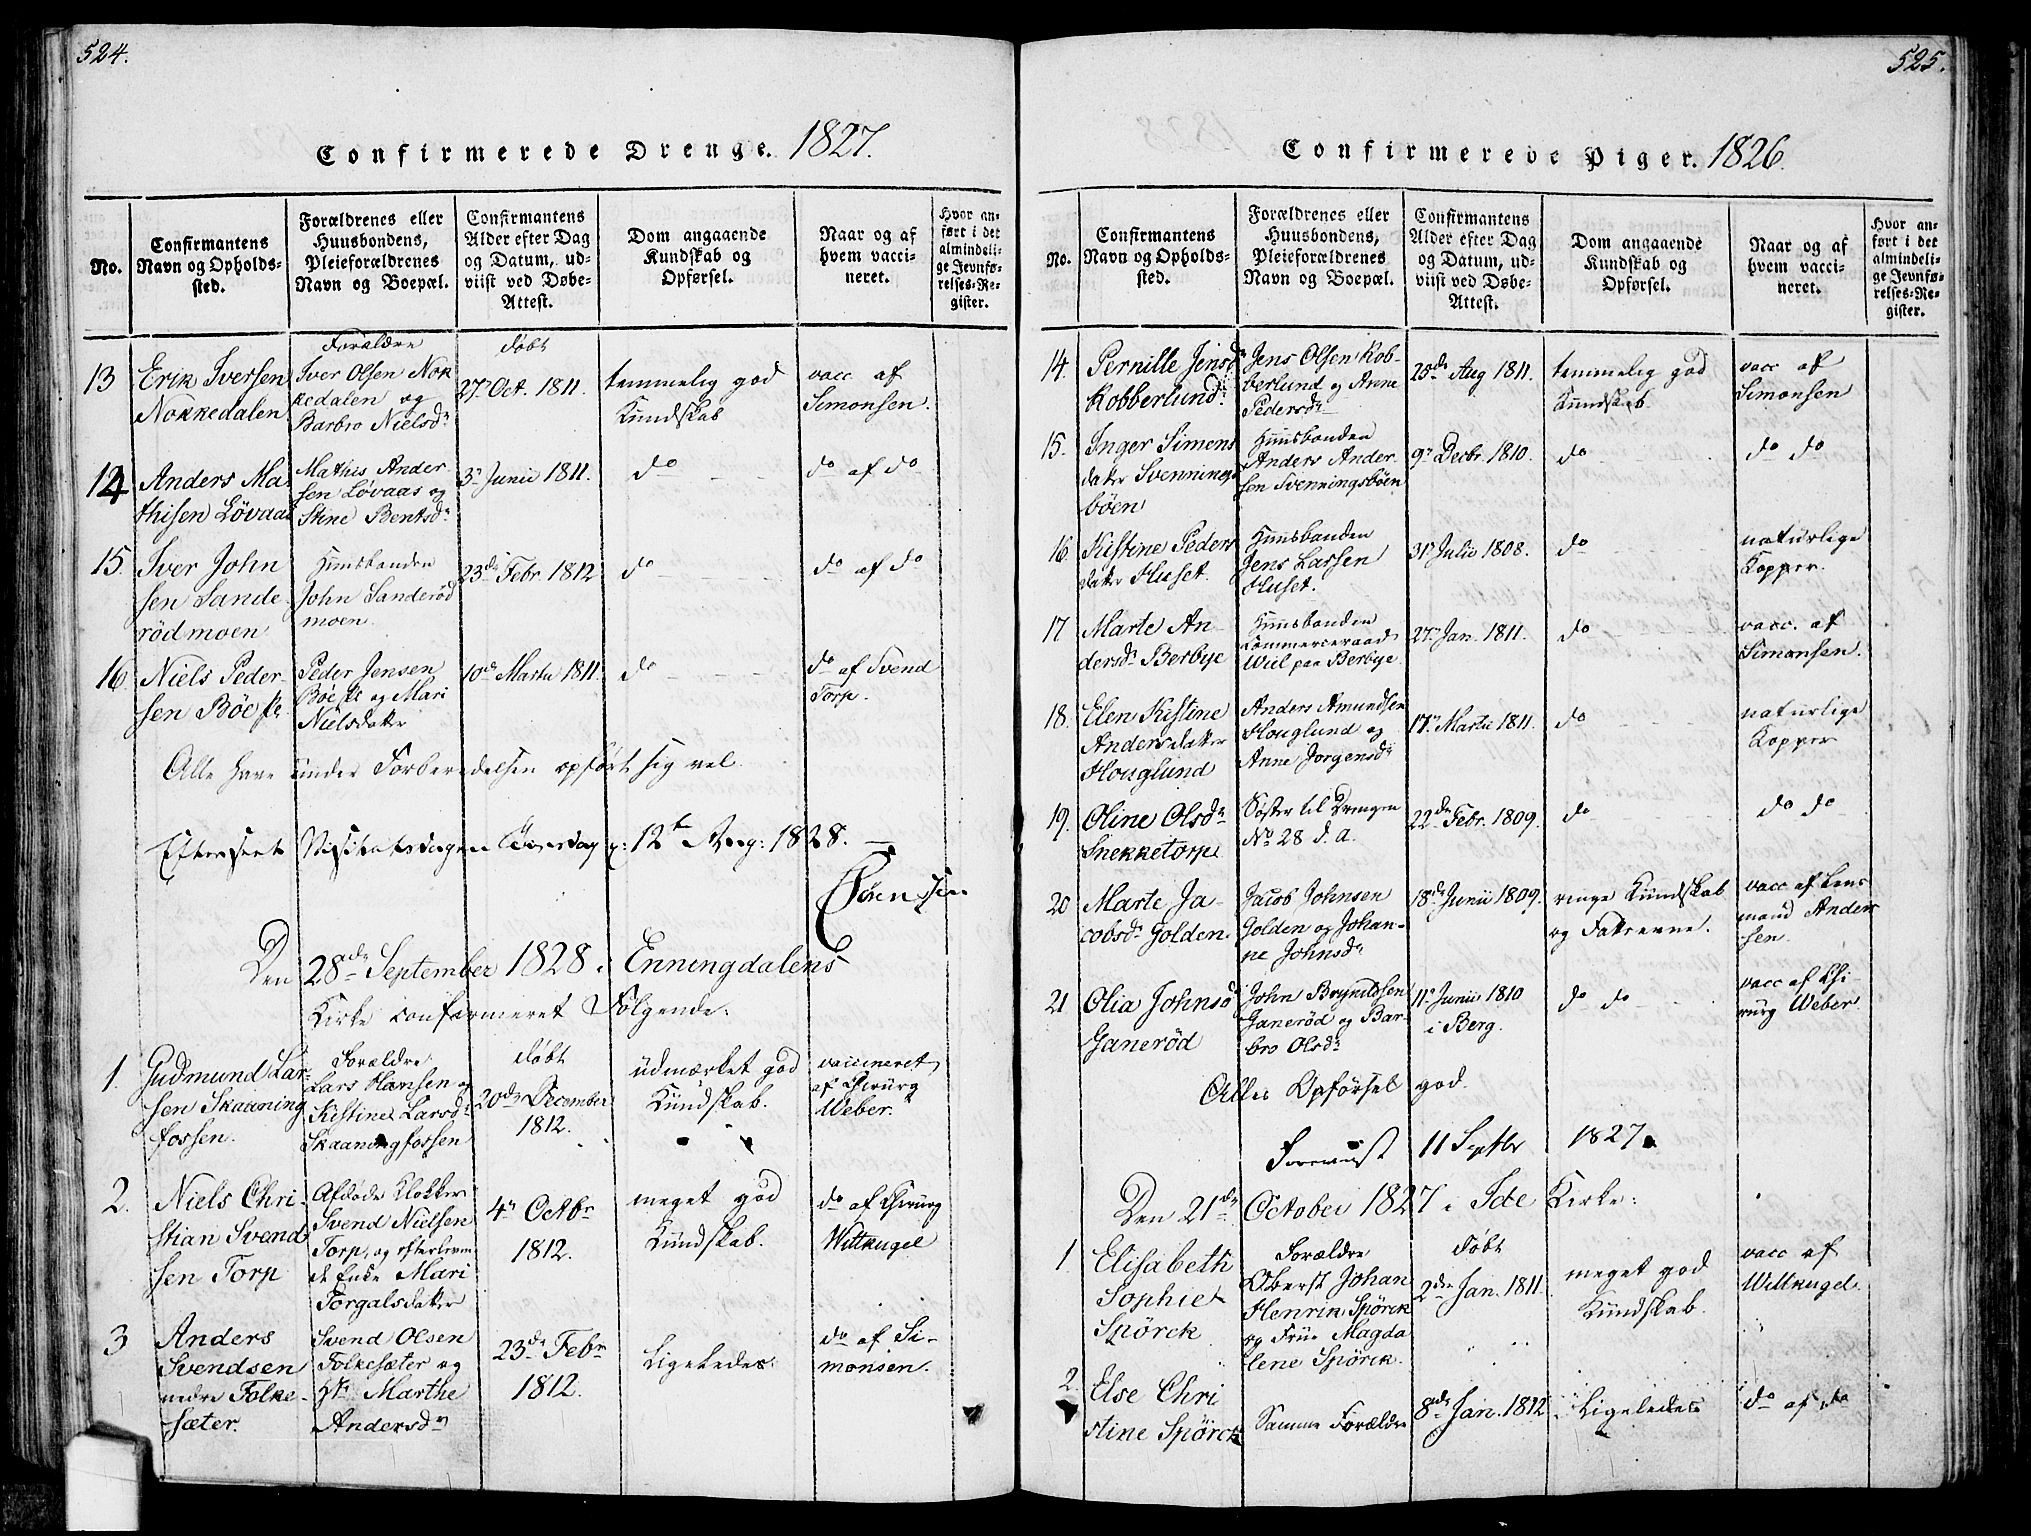 524.
Confirmerede Drenge. 1827.
No.
Confirmantens
Navn og Opholds-
sted.
Forældrenes eller
Huusbondens,
Pleieforældrenes
Navn og Boepæl.
Confirmantens
Alder efter Dag
og Datum, ud-
viist ved Døbe-
Attest.
Dom angaaende
Kundskab og
Opførsel.
Naar og af
hvem vacci-
neret.
Hvor an-
ført i det
almindeli-
ge Jevnfø-
relses-Re-
gister.
13
Erik Iversen
Nokkedalen
Forældre
Iver Olsen Nok
kedalen og
Barbro Nielsdr
døbt
27 Oct. 1811.
temmelig god
Kundskab
vacc af
Simonsen.
14
Anders Ma
thisen Løvaas
Mathis Ander
sen Løvaas og
Stine Bentsdr
3 Junii 1811.
do
do af do
15.
Iver John
sen Sande
rödmoen
Huusbonden
John Sanderöd
moen
23de Febr. 1812
do
do af do
16
Niels Peder-
sen Böeske
Peder Jensen
Böeske og Mari
Nielsdatter
10de Martii 1811.
do
do af Svend
Torp.
Alle have under Forberedelsen opført sig vel.
Efterseet Visitatsdagen Tiirsdag d: 12te Aug: 1828. —
Sörenssen
Den 28de September 1828 i Enningdalens
Kirke confirmeret Følgende:
1.
Gudmund Lar-
sen Skaaning
fossen.
Forældre
Lars Hansen og
Kistine Larsdr
Skaaningfossen
døbt
20de December
1812.
udmærket god
Kundskab.
vaccineret
af Chirurg
Weber.
2.
Niels Chri-
stian Svend
sen Torp
Afdøde Klokker
Svend Nielsen
Torp, og efterleven
de Enke Mari
Torgalsdatter
4 Octbr
1812.
meget god
Kundskab.
do af Chirurg
Wittkugel
3
Anders
Svendsen
nedre Folke-
sæter.
Svend Olsen
Folkesæter og
Marthe
Andersdr
23de Febr
1812.
Ligeledes.
do af Si-
monsen.
525.
Confirmerede Piger. 1826.
No.
Confirmantens
Navn og Opholds-
sted.
Forældrenes eller
Huusbondens,
Pleieforældrenes
Navn og Boepæl.
Confirmantens
Alder efter Dag
og Datum, ud-
viist ved Døbe-
Attest.
Dom angaaende
Kundskab og
Opførsel.
Naar og af
hvem vacci-
neret.
Hvor an-
ført i det
almindeli-
ge Jevnfø-
relses-Re-
gister.
14.
Pernille Jensdr
Kobberlund.
Jens Olsen Kob-
berlund og Anne
Pedersdr
25de Aug 1811.
temmelig god
Kundskab
vacc af
Simonsen
15.
Inger Simens
datter Svennings
böen
Huusbonden
Anders Ander
sen Svenningsböen
9 Decbr. 1810.
do
do do
16
Kistine Peders
datter Huset.
Huusbonden
Jens Larsen
Huset.
31 Julii 1808.
do
naturlige
Kopper.
17
Marte An
dersdr Berbye
Huusbonden
Commerceraad
Wiel paa Berbye.
27 Jan. 1811.
do
vacc. af
Simonsen.
18.
Elen Kistine
Andersdatter
Houglund
Anders Amundsen
Houglund og
Anne Jorgensdr
17 Martii 1811.
do
naturlige
Kopper
19.
Oline Olsdr
Snekketorp
Søster til Drengen
No 28 d. a.
22de Febr. 1809.
do
do do
20
Marte Ja-
cobsdr Golden.
Jacob Johnsen
Golden og Johan-
ne Johnsdr
18de Junii 1809.
ringe Kundskab
og Fatteevne.
vacc af Lens
mand Ander
sen.
21
Olia Johnsd
Ganerød
John Brynildsen
Ganerød og Bar-
bro Olsdr
11 Junii 1810
i Berg.
do do
vacc af Chi
rurg Weber
Alles Opførsel god.
Foreviist 11 Septbr 1827.
Den 21de October 1827 i Idde Kirke:
1
Elisabeth
Sophie
Spörck
Forældre
Oberst Johan
Henrik Spörck
og Frue Magda
lene Spörck.
døbt
2den Jan. 1811.
meget god
Kundskab.
vacc af
Wittkugel.
2
Else Chri
stine Spörck
Samme Forældre
8de Jan. 1812
Ligeledes
do af do